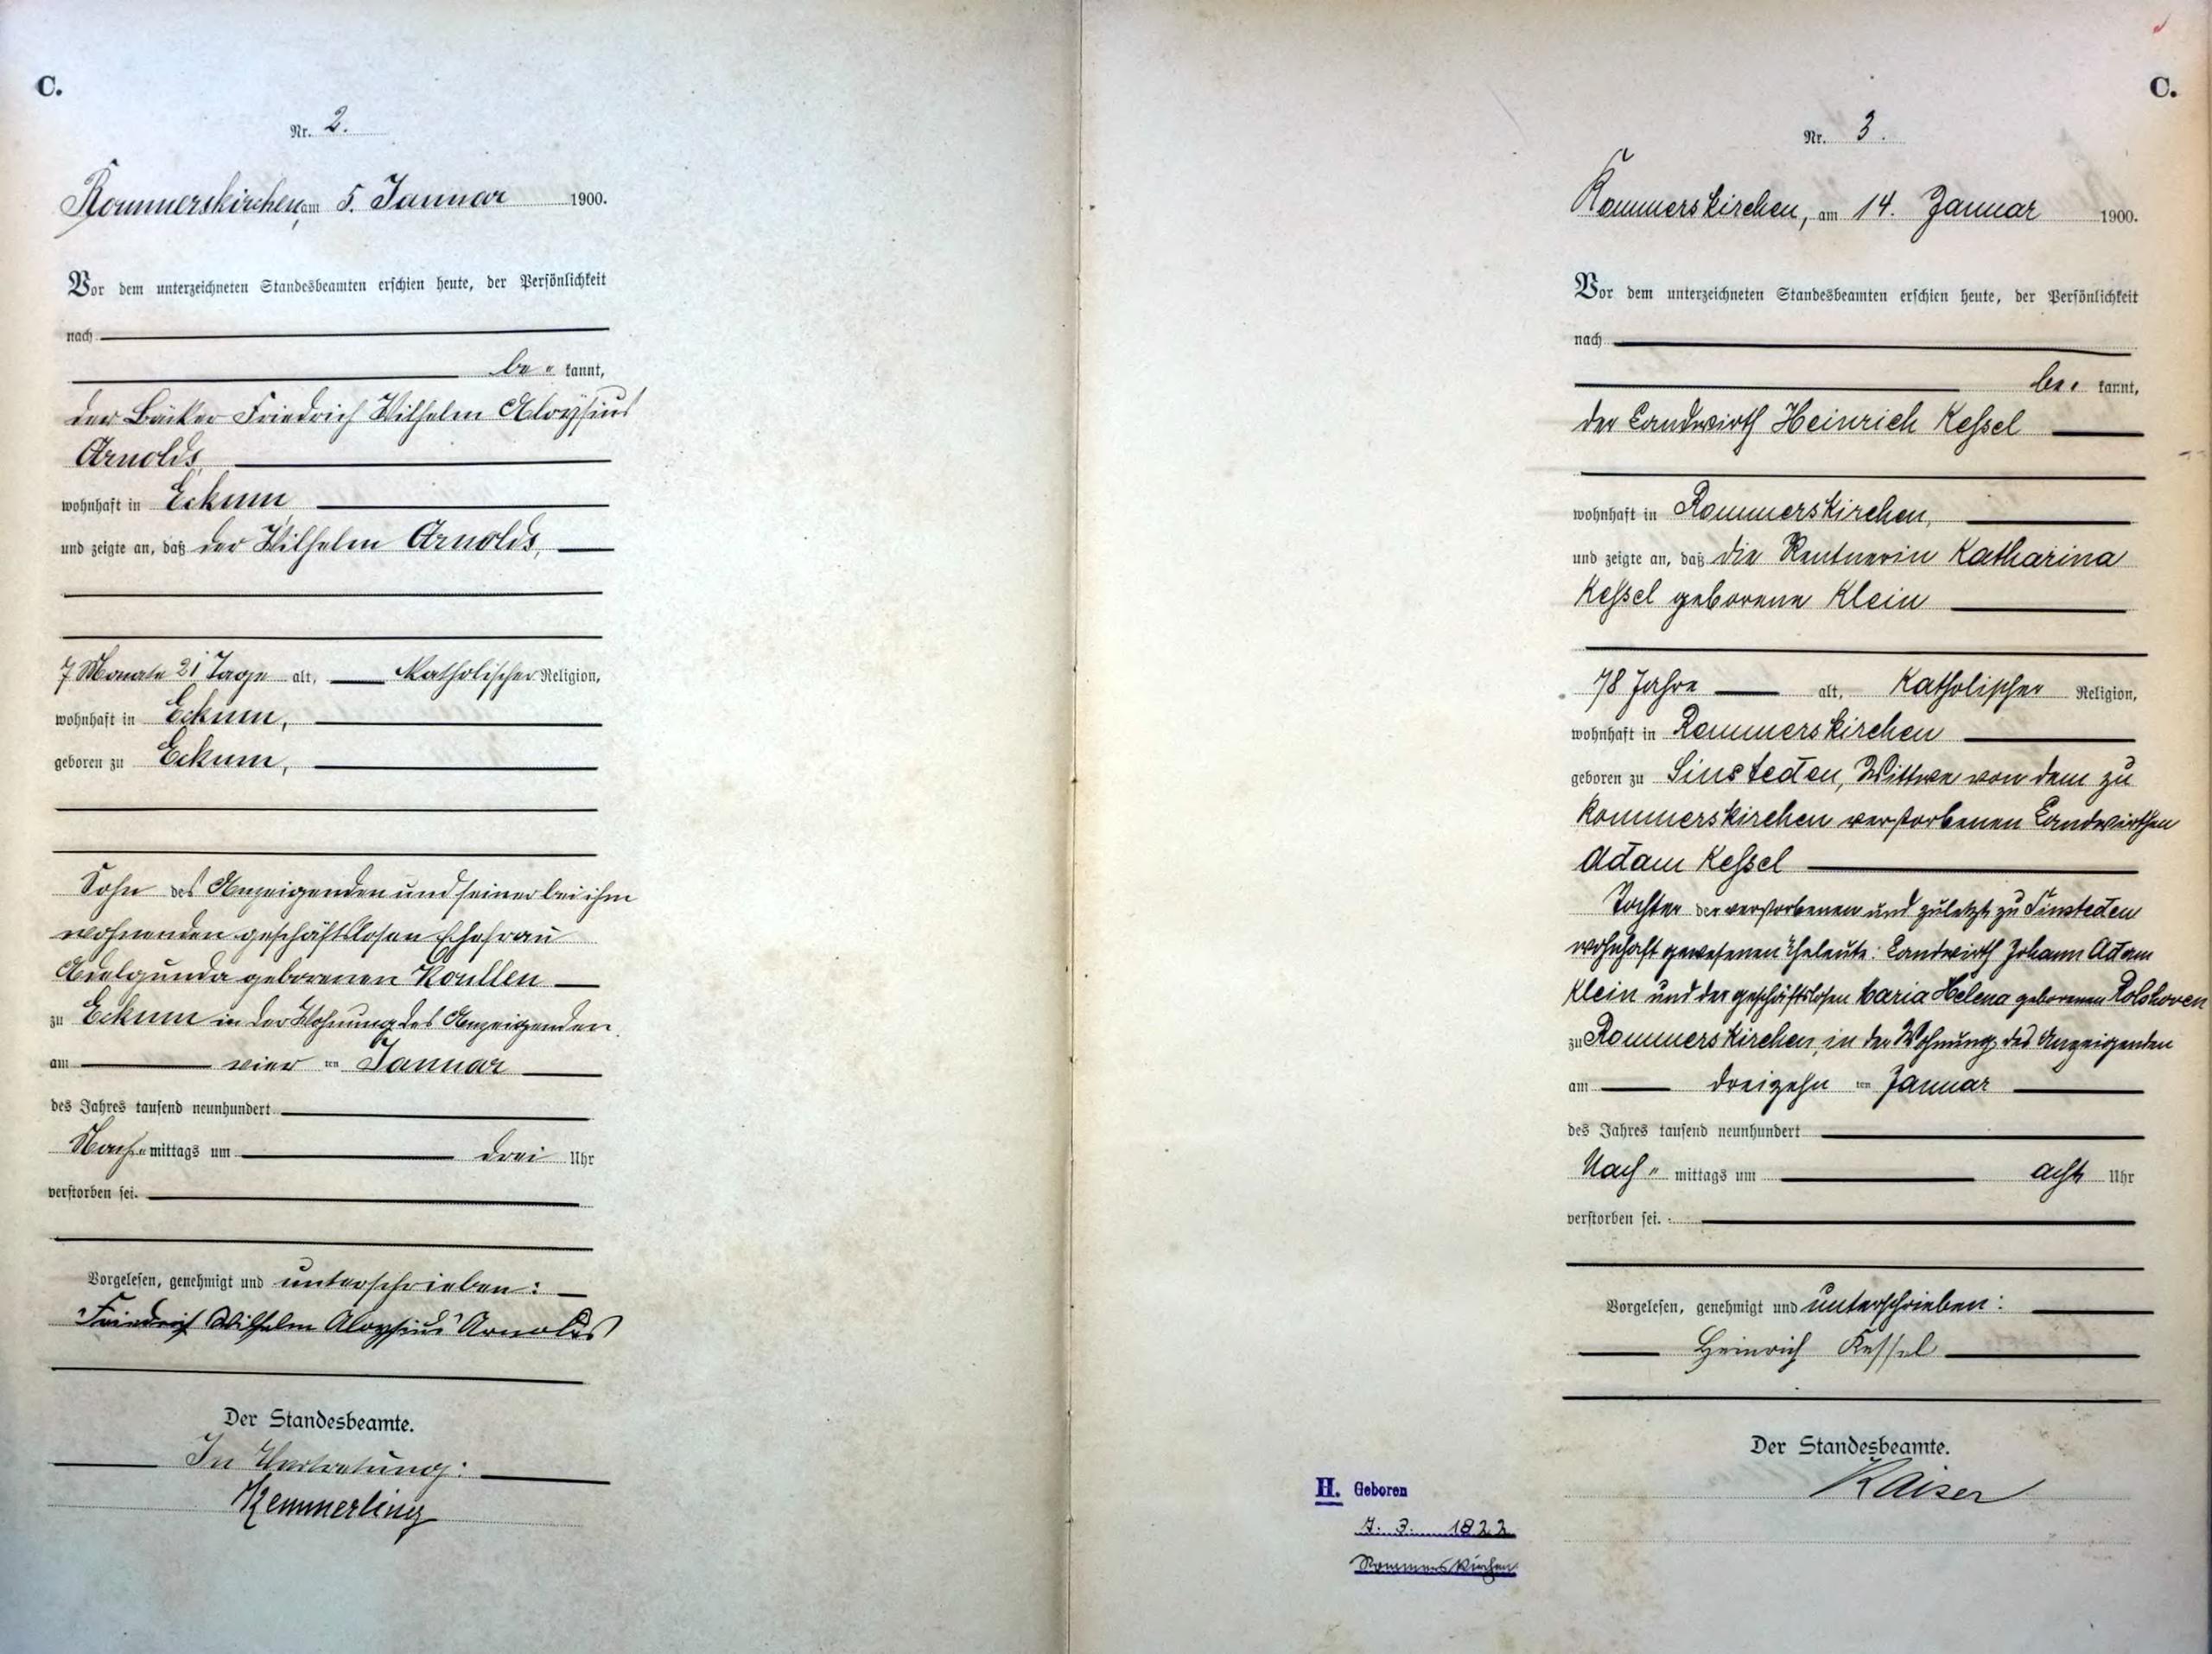 C.
Nr. 2.
Rommerskirchen, am 5. Januar 1900.
Vor dem unterzeichneten Standesbeamten erschien heute, der Persönlichkeit
nach
be " kannt,
der Bäcker Friedrich Wilhelm Aloysius
Arnolds,
wohnhaft in Eckum,
und zeigte an, daß der Wilhelm Arnolds,
7 Monate 21 Tage alt, katholischer Religion,
wohnhaft in Eckum,
geboren zu Eckum,
Sohn des Anzeigenden und seiner bei ihm
wohnenden geschäftslosen Ehefrau
Adelgunda geborenen
zu Eckum in der Wohnung des Anzeigenden.
am vier ten Januar
des Jahres tausend neunhundert
Nach " mittags um drei Uhr
verstorben sei.
Vorgelesen, genehmigt und unterschrieben:
Friedrich Wilhelm Aloysius Arnolds
Der Standesbeamte.
In Vertretung:
Kemmerling
C.
Nr. 3.
Rommerskirchen, am 14. Januar 1900.
Vor dem unterzeichneten Standesbeamten erschien heute, der Persönlichkeit
nach
be " kannt,
der Landwirth Heinrich Keßel
wohnhaft in Rommerskirchen,
und zeigte an, daß die Rentnerin Katharina
Keßel geborene Klein
78 Jahre alt, katholischer Religion,
wohnhaft in Rommerskirchen
geboren zu Sinsteden, Wittwe von dem zu
Rommerskirchen verstorbenen Landwirthen
Adam Keßel
Tochter der verstorbenen und zuletzt zu Sinsteden
wohnhaft gewesenen Eheleute: Landwirth Johann Adam
Klein und der geschäftslosen Maria Helena geborenen Rolshoven
zu Rommerskirchen, in der Wohnung des Anzeigenden
am dreizehn ten Januar
des Jahres tausend neunhundert
Nach " mittags um acht Uhr
verstorben sei.
Vorgelesen, genehmigt und unterschrieben:
Heinrich Kessel
Der Standesbeamte.
Kaiser
H. Geboren
7. 3. 1822
Rommerskirchen